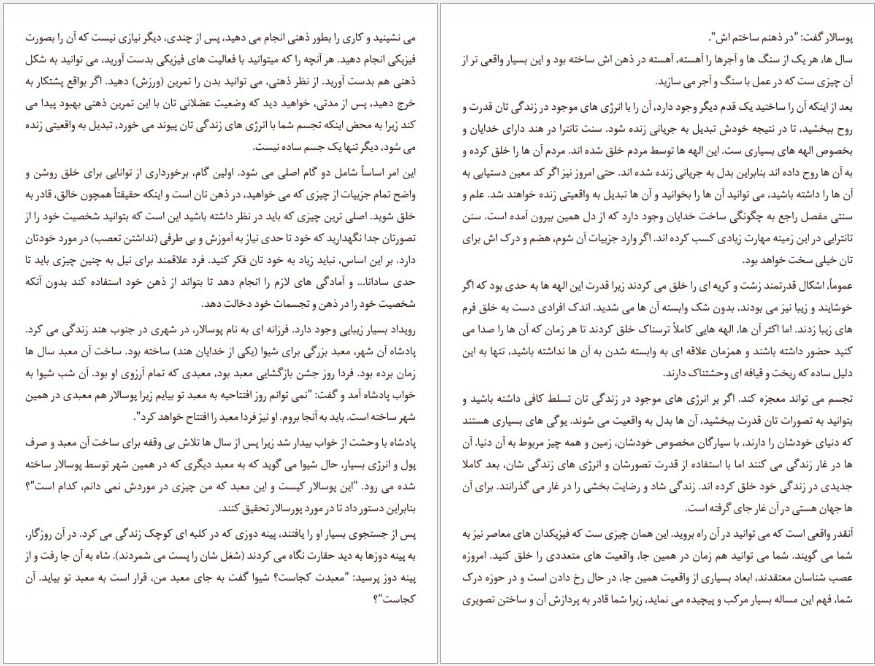 می نشینید و کاری را بطور ذهنی انجام می دهید، پس از چندی، دیگر نیازی نیست که آن را بصورت
فیزیکی انجام دهید. هر آنچه را که میتوانید با فعالیت های فیزیکی بدست آورید، می توانید به شکل
ذهنی هم بدست آورید. از نظر ذهنی، می توانید بدن را تمرین (ورزش) دهید. اگر بواقع پشتکار به
خرج دهید، پس از مدتی، خواهید دید که وضعیت عضلانی تان با این تمرین ذهنی بهبود پیدا می
کند زیرا به محض اینکه تجسم شما با انرژی های زندگی تان پیوند می خورد، تبدیل به واقعیتی زنده
می شود، دیگر تنها یک جسم ساده نیست.
این امر اساساً شامل دو گام اصلی می شود. اولین گام، برخورداری از توانایی برای خلق روشن و
واضح تمام جزییات از چیزی که می خواهید، در ذهن تان است و اینکه حقیقتاً همچون خالق، قادر به
خلق شوید. اصلی ترین چیزی که باید در نظر داشته باشید این است که بتوانید شخصیت خود را از
تصورتان جدا نگهدارید که خود تا حدی نیاز به آموزش و بی طرفی (نداشتن تعصب) در مورد خودتان
دارد. بر این اساس، نباید زیاد به خود تان فکر کنید. فرد علاقمند برای نیل به چنین چیزی باید تا
حدی سادانا... و آمادگی های لازم را انجام دهد تا بتواند از ذهن خود استفاده کند بدون آنکه
شخصیت خود را در ذهن و تجسمات خود دخالت دهد.
رویداد بسیار زیبایی وجود دارد. فرزانه ای به نام پوسالار، در شهری در جنوب هند زندگی می کرد.
پادشاه آن شهر، معبد بزرگی برای شیوا (یکی از خدایان هند) ساخته بود. ساخت آن معبد سال ها
زمان برده بود. فردا روز جشن بازگشایی معبد بود، معبدی که تمام آرزوی او بود. آن شب شیوا به
خواب پادشاه آمد و گفت: "نمی توانم روز افتتاحیه به معبد تو بیایم زیرا پوسالار هم معبدی در همین
شهر ساخته است. باید به آنجا بروم. او نیز فردا معبد را افتتاح خواهد کرد".
پادشاه با وحشت از خواب بیدار شد زیرا پس از سال ها تلاش بی وقفه برای ساخت آن معبد و صرف
پول و انرژی بسیار، حال شیوا می گوید که به معبد دیگری که در همین شهر توسط پوسالار ساخته
شده می رود. "این پوسالار کیست و این معبد که من چیزی در موردش نمی دانم، کدام است"؟
بنابراین دستور داد تا در مورد پورسالار تحقیق کنند.
پس از جستجوی بسیار او را یافتند، پینه دوزی که در کلبه ای کوچک زندگی می کرد. در آن روزگار،
به پینه دوزها به دید حقارت نگاه می کردند (شغل شان را پست می شمردند). شاه به آن جا رفت و از
پینه دوز پرسید: "معبدت کجاست؟ شیوا گفت به جای معبد من، قرار است به معبد تو بیاید. آن
کجاست"؟
پوسالار گفت: "در ذهنم ساختم اش".
سال ها، هر یک از سنگ ها و آجرها را آهسته، آهسته در ذهن اش ساخته بود و این بسیار واقعی تر از
آن چیزی ست که در عمل با سنگ و آجر می سازید.
بعد از اینکه آن را ساختید یک قدم دیگر وجود دارد، آن را با انرژی های موجود در زندگی تان قدرت و
روح ببخشید، تا در نتیجه خودش تبدیل به جریانی زنده شود. سنت تانترا در هند دارای خدایان و
بخصوص الهه های بسیاری ست. این الهه ها توسط مردم خلق شده اند. مردم آن ها را خلق کرده و
به آن ها روح داده اند بنابراین بدل به جریانی زنده شده اند. حتی امروز نیز اگر کد معین دستیابی به
آن ها را داشته باشید، می توانید آن ها را بخوانید و آن ها تبدیل به واقعیتی زنده خواهند شد. علم و
سنتی مفصل راجع به چگونگی ساخت خدایان وجود دارد که از دل همین بیرون آمده است. سنن
تانترایی در این زمینه مهارت زیادی کسب کرده اند. اگر وارد جزییات آن شوم، هضم و درک اش برای
تان خیلی سخت خواهد بود.
عموماً، اشکال قدرتمند زشت و کریه ای را خلق می کردند زیرا قدرت این الهه ها به حدی بود که اگر
خوشایند و زیبا نیز می بودند، بدون شک وابسته آن ها می شدید. اندک افرادی دست به خلق فرم
های زیبا زدند. اما اکثر آن ها، الهه هایی کاملاً ترسناک خلق کردند تا هر زمان که آن ها را صدا می
کنید حضور داشته باشند و همزمان علاقه ای به وابسته شدن به آن ها نداشته باشید، تنها به این
دلیل ساده که ریخت و قیافه ای وحشتناک دارند.
تجسم می تواند معجزه کند. اگر بر انرژی های موجود در زندگی تان تسلط کافی داشته باشید و
بتوانید به تصورات تان قدرت ببخشید، آن ها بدل به واقعیت می شوند. یوگی های بسیاری هستند
که دنیای خودشان را دارند، با سیارگان مخصوص خودشان، زمین و همه چیز مربوط به آن دنیا. آن
ها در غار زندگی می کنند اما با استفاده از قدرت تصورشان و انرژی های زندگی شان، بعد کاملا
جدیدی در زندگی خود خلق کرده اند. زندگی شاد و رضایت بخشی را در غار می گذرانند. برای آن
ها جهان هستی در آن غار جای گرفته است.
آنقدر واقعی است که می توانید در آن راه بروید. این همان چیزی ست که فیزیکدان های معاصر نیز به
شما می گویند. شما می توانید هم زمان در همین جا، واقعیت های متعددی را خلق کنید. امروزه
عصب شناسان معتقدند، ابعاد بسیاری از واقعیت همین جا، در حال رخ دادن است و در حوزه درک
شما، فهم این مساله بسیار مرکب و پیچیده می نماید، زیرا شما قادر به پردازش آن و ساختن تصویری